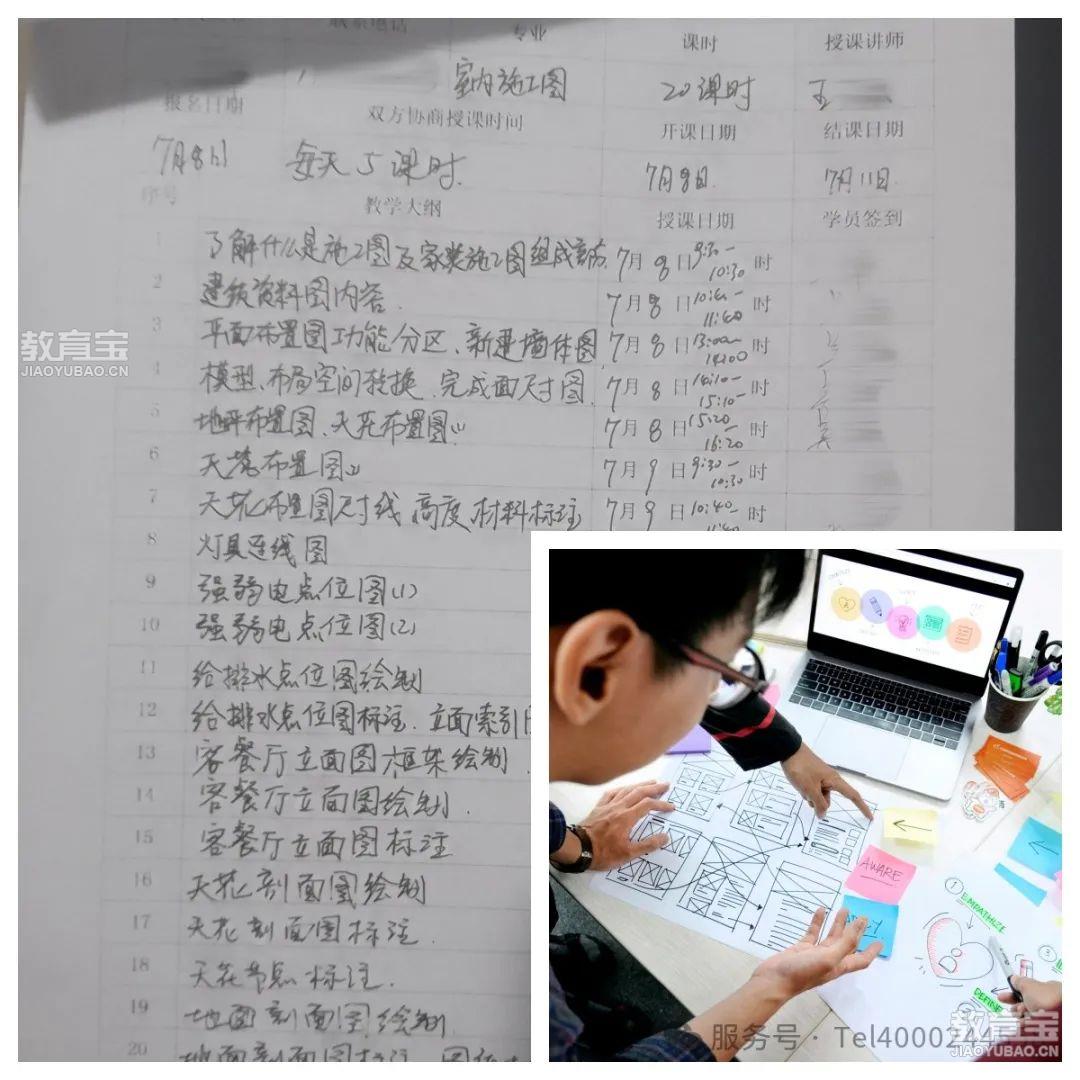 联系电话 专业 课时 授课讲师
室内施工图 20课时 王
报名日期 双方协商授课时间 开课日期 结课日期
7月8日 每天5课时. 7月8日. 7月11日.
序号 教学大纲 授课日期 学员签到
1 了解什么是施工图及家装施工图组成部分 7月8日9:30-10:30时
2 建筑资料图内容. 7月8日10:40-11:40时
3 平面布置图功能分区、新建墙体图 7月8日13:00-14:00时
4 模型、布局空间转换、完成面尺寸图. 7月8日14:10-15:10时
5 地坪布置图、天花布置图(1) 7月8日15:20-16:20时
6 天花布置图(2) 7月9日9:30-10:30时
7 天花布置图尺寸线 高度 材料标注 7月9日10:40-11:40时
8 灯具连线图
9 强弱电点位图(1)
10 强弱电点位图(2)
11 给排水点位图绘制
12 给排水点位图标注、立面索引
13 客餐厅立面图框架绘制.
14 客餐厅立面图绘制.
15 客餐厅立面图标注
16 天花剖面图绘制
17 天花剖面图标注.
18 天花节点标注.
19 地面剖面图绘制.
20 地面剖面图标注
教育宝
JIAOYUBAO.CN
AWARE
① EMPATHIZE
③
DEFINE
服务号 · Tel4000244
教育宝
JIAOYUBAO.CN